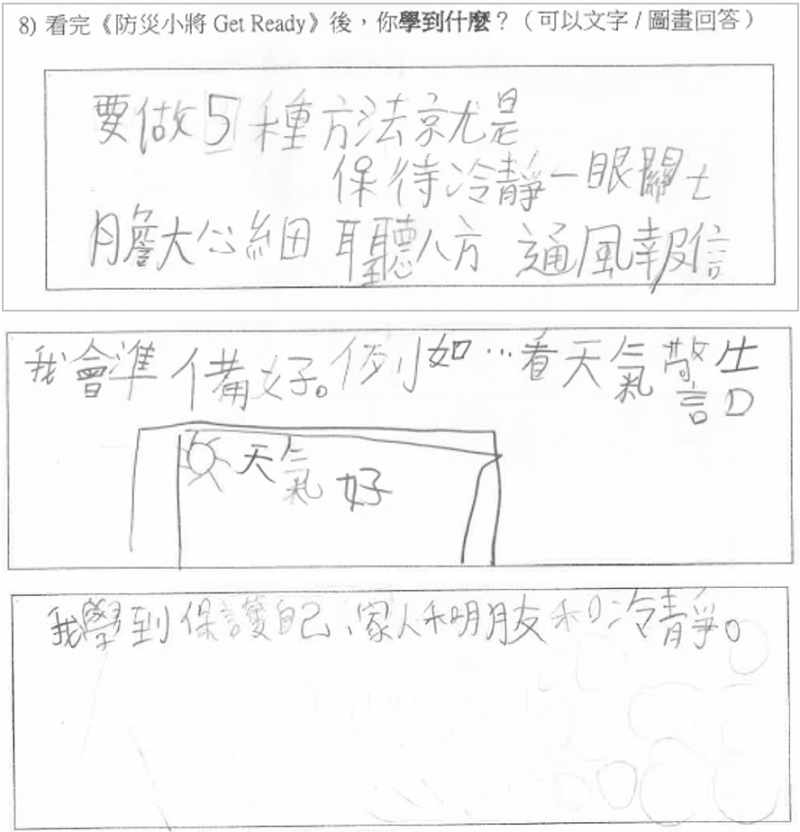 8) 看完《防災小將 Get Ready》後，你學到什麼？（可以文字 / 圖畫回答）
要做5種方法就是
保待冷靜一眼關七
膽大心細 耳聽八方 通風報信
我會準備好。例如…看天氣警告
天氣好
我學到保護自己、家人和朋友和冷靜。